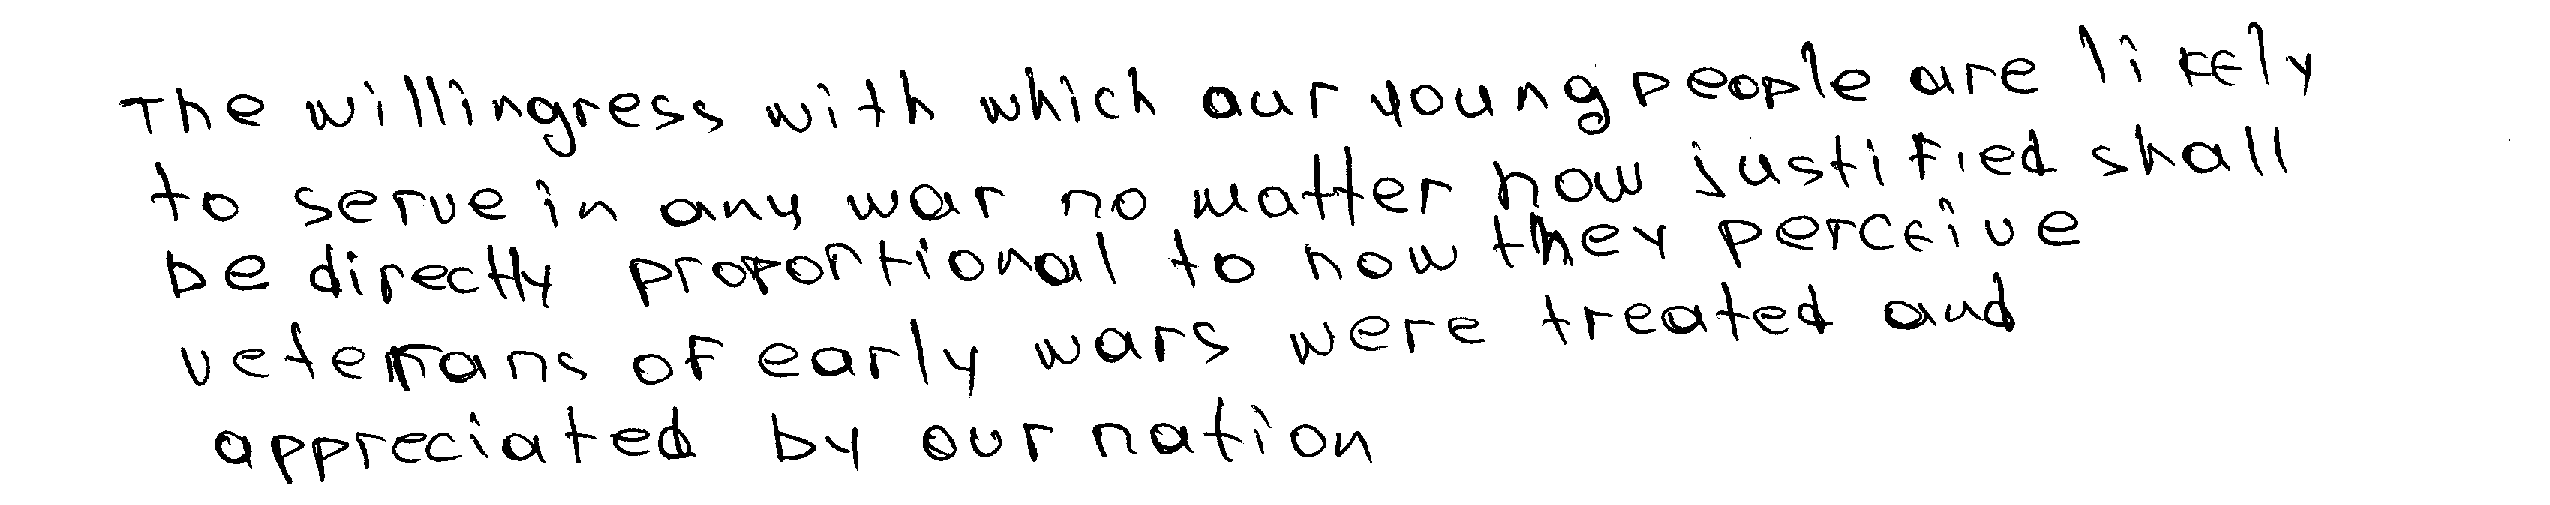 The willingness with which our young people are likely
to serve in any war no matter how justified shall
be directly proportional to how they perceive
veterans of early wars were treated and
appreciated by our nation